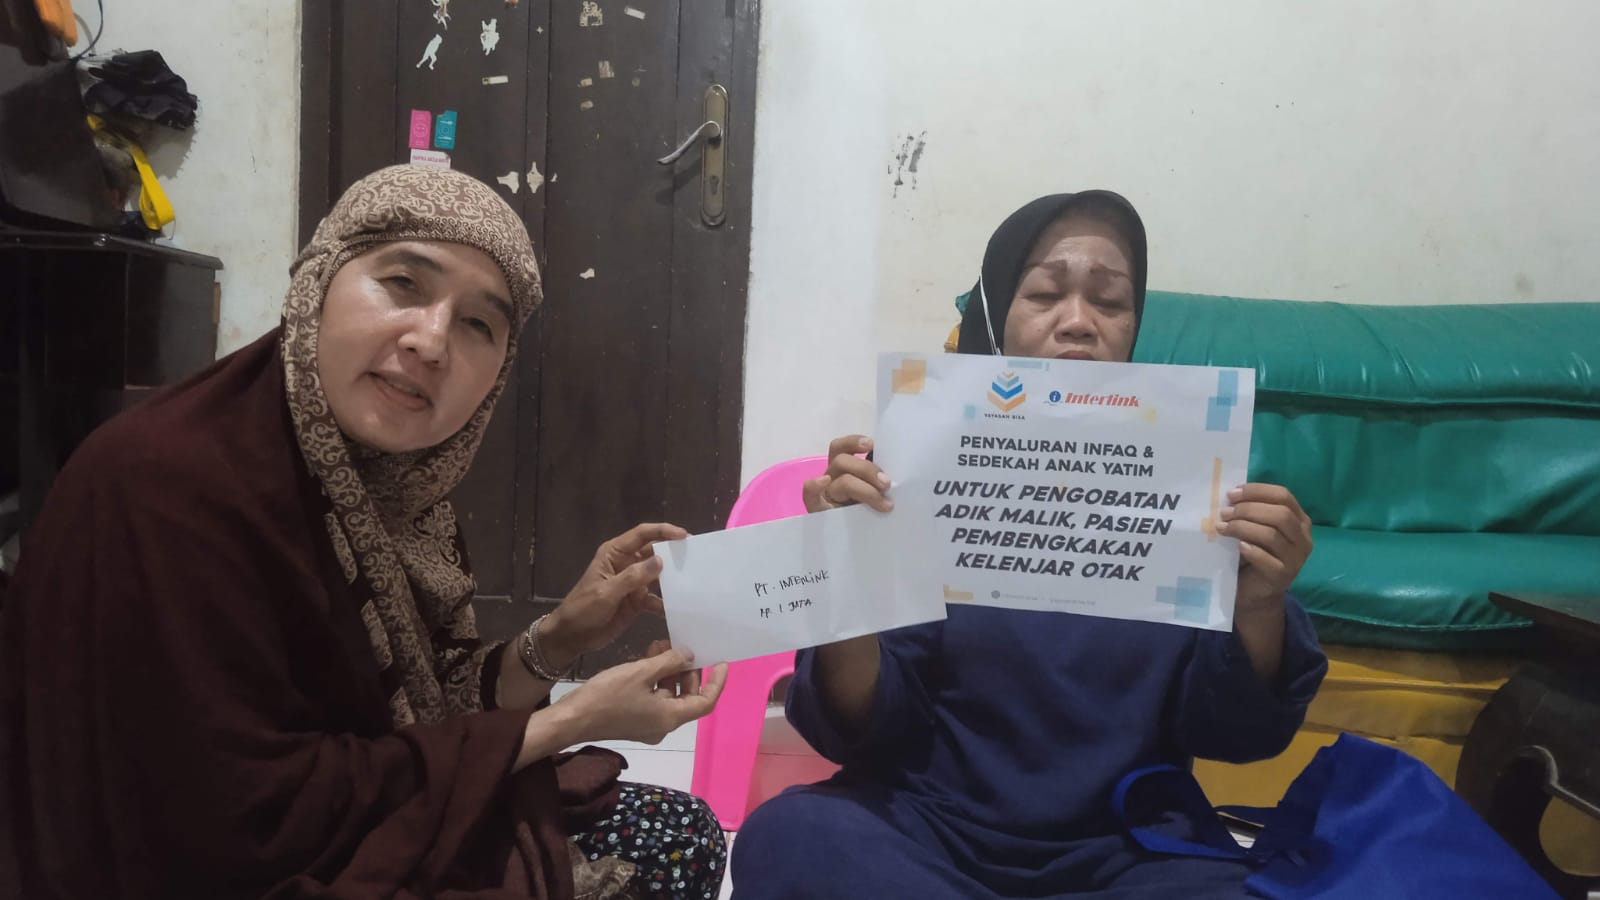 YAYASAN BISA
Interlink
PENYALURAN INFAQ &
SEDEKAH ANAK YATIM
UNTUK PENGOBATAN
ADIK MALIK, PASIEN
PEMBENGKAKAN
KELENJAR OTAK
PT. INTERLINK
RP. 1 JUTA